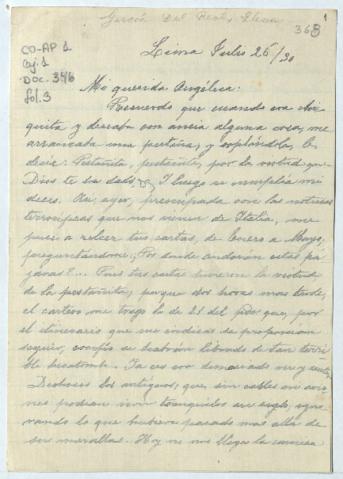 García Del Real, Elena
368
1
CO-AP 1
Caj. 1
Doc. 346
fol. 3
Lima Julio 26/30
Mi querida Angélica:
Recuerdo que cuando era chi-
quita y deseaba con ansia alguna cosa, me
arrancaba una pestaña, y soplándola, le
decía: Pestañita, pestañita, por la virtud que
Dios te ha dado, &, I luego se cumplía mi
deseo. Así, ayer, preocupada con las noticias
terroríficas que nos vienen de Italia, me
puse a releer tus cartas, de Enero a Mayo,
preguntándome: ¿Por donde andarán estas pá
jaras?... Pues tus cartas tuvieron la virtud
de la pestañita, porque dos horas mas tarde,
el cartero me trajo la de 21 del pdo. que, por
el itinerario que me indicas se proponían
seguir, confío se habrán librado de tan terri-
ble hecatombe. Ya es ser demasiado
Dichosos los antiguos; que, sin cables ni avio-
nes podían vivir tranquilos un siglo, igno-
rando lo que hubiera pasado mas allá de
sus murallas. Hoy no nos llega la camisa